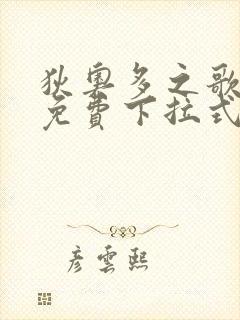 狄奧多之歌
免費下拉式
彥雲熙